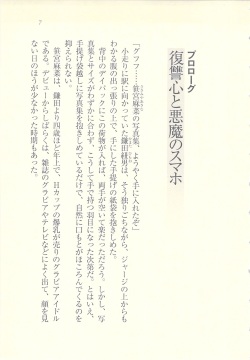 7
プロローグ
復讐心と悪魔のスマホ
「グフフ……笹宮麻菜の写真集、ようやく手に入れたぞ」
小走りに駅に向かっていた鎌田純男は、そう独りごちながら、ジャージの上からも
わかる腹の出っ張りの上で、手にした手提げの紙袋を抱きしめた。
背中のデイパックにこの荷物が入れば、両手が空いて楽だっただろう。しかし、写
真集とサイズがわずかに合わず、こうして手で持つ羽目になった次第だ。とはいえ、
手提げ袋越しに写真集を抱きしめているだけで、自然に口もとがほころんでくるのを
抑えられない。
笹宮麻菜は、鎌田より四歳ほど年上で、Hカップの爆乳が売りのグラビアアイドル
である。デビューからしばらくは、雑誌のグラビアやテレビなどによく出て、顔を見
ない日のほうが少なかった時期もあった。